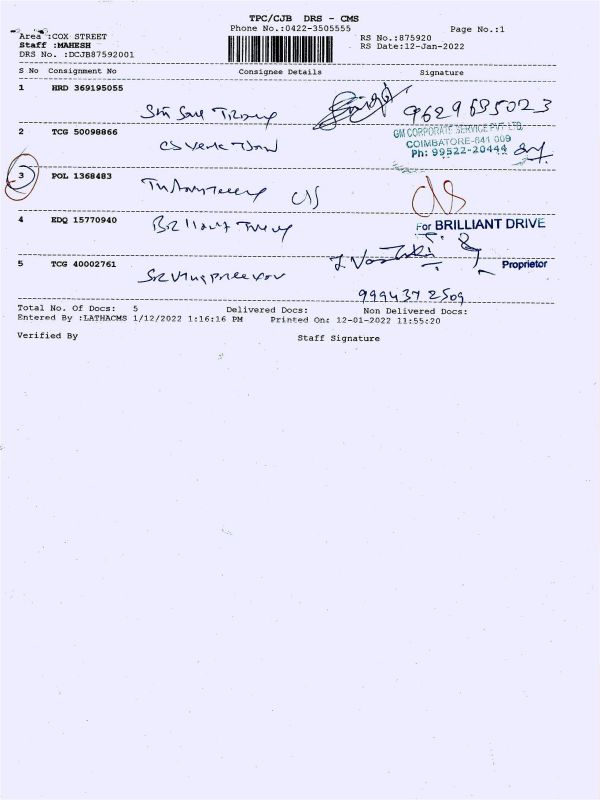 TPC/CJB DRS - CMS
Phone No.:0422-3505555
Page No.:1
Area :COX STREET
RS No.:875920
Staff :MAHESH
RS Date:12-Jan-2022
DRS No. :DCJB87592001
S No Consignment No Consignee Details Signature
1 HRD 369195055
9629635023
2 TCG 50098866
GM CORPORATE SERVICE PVT LTD,
COIMBATORE-641 009
Ph: 99522-20444
3 POL 1368483
4 EDQ 15770940
For BRILLIANT DRIVE
Proprietor
5 TCG 40002761
9994372509
Total No. Of Docs: 5 Delivered Docs: Non Delivered Docs:
Entered By :LATHACMS 1/12/2022 1:16:16 PM Printed On: 12-01-2022 11:55:20
Verified By Staff Signature